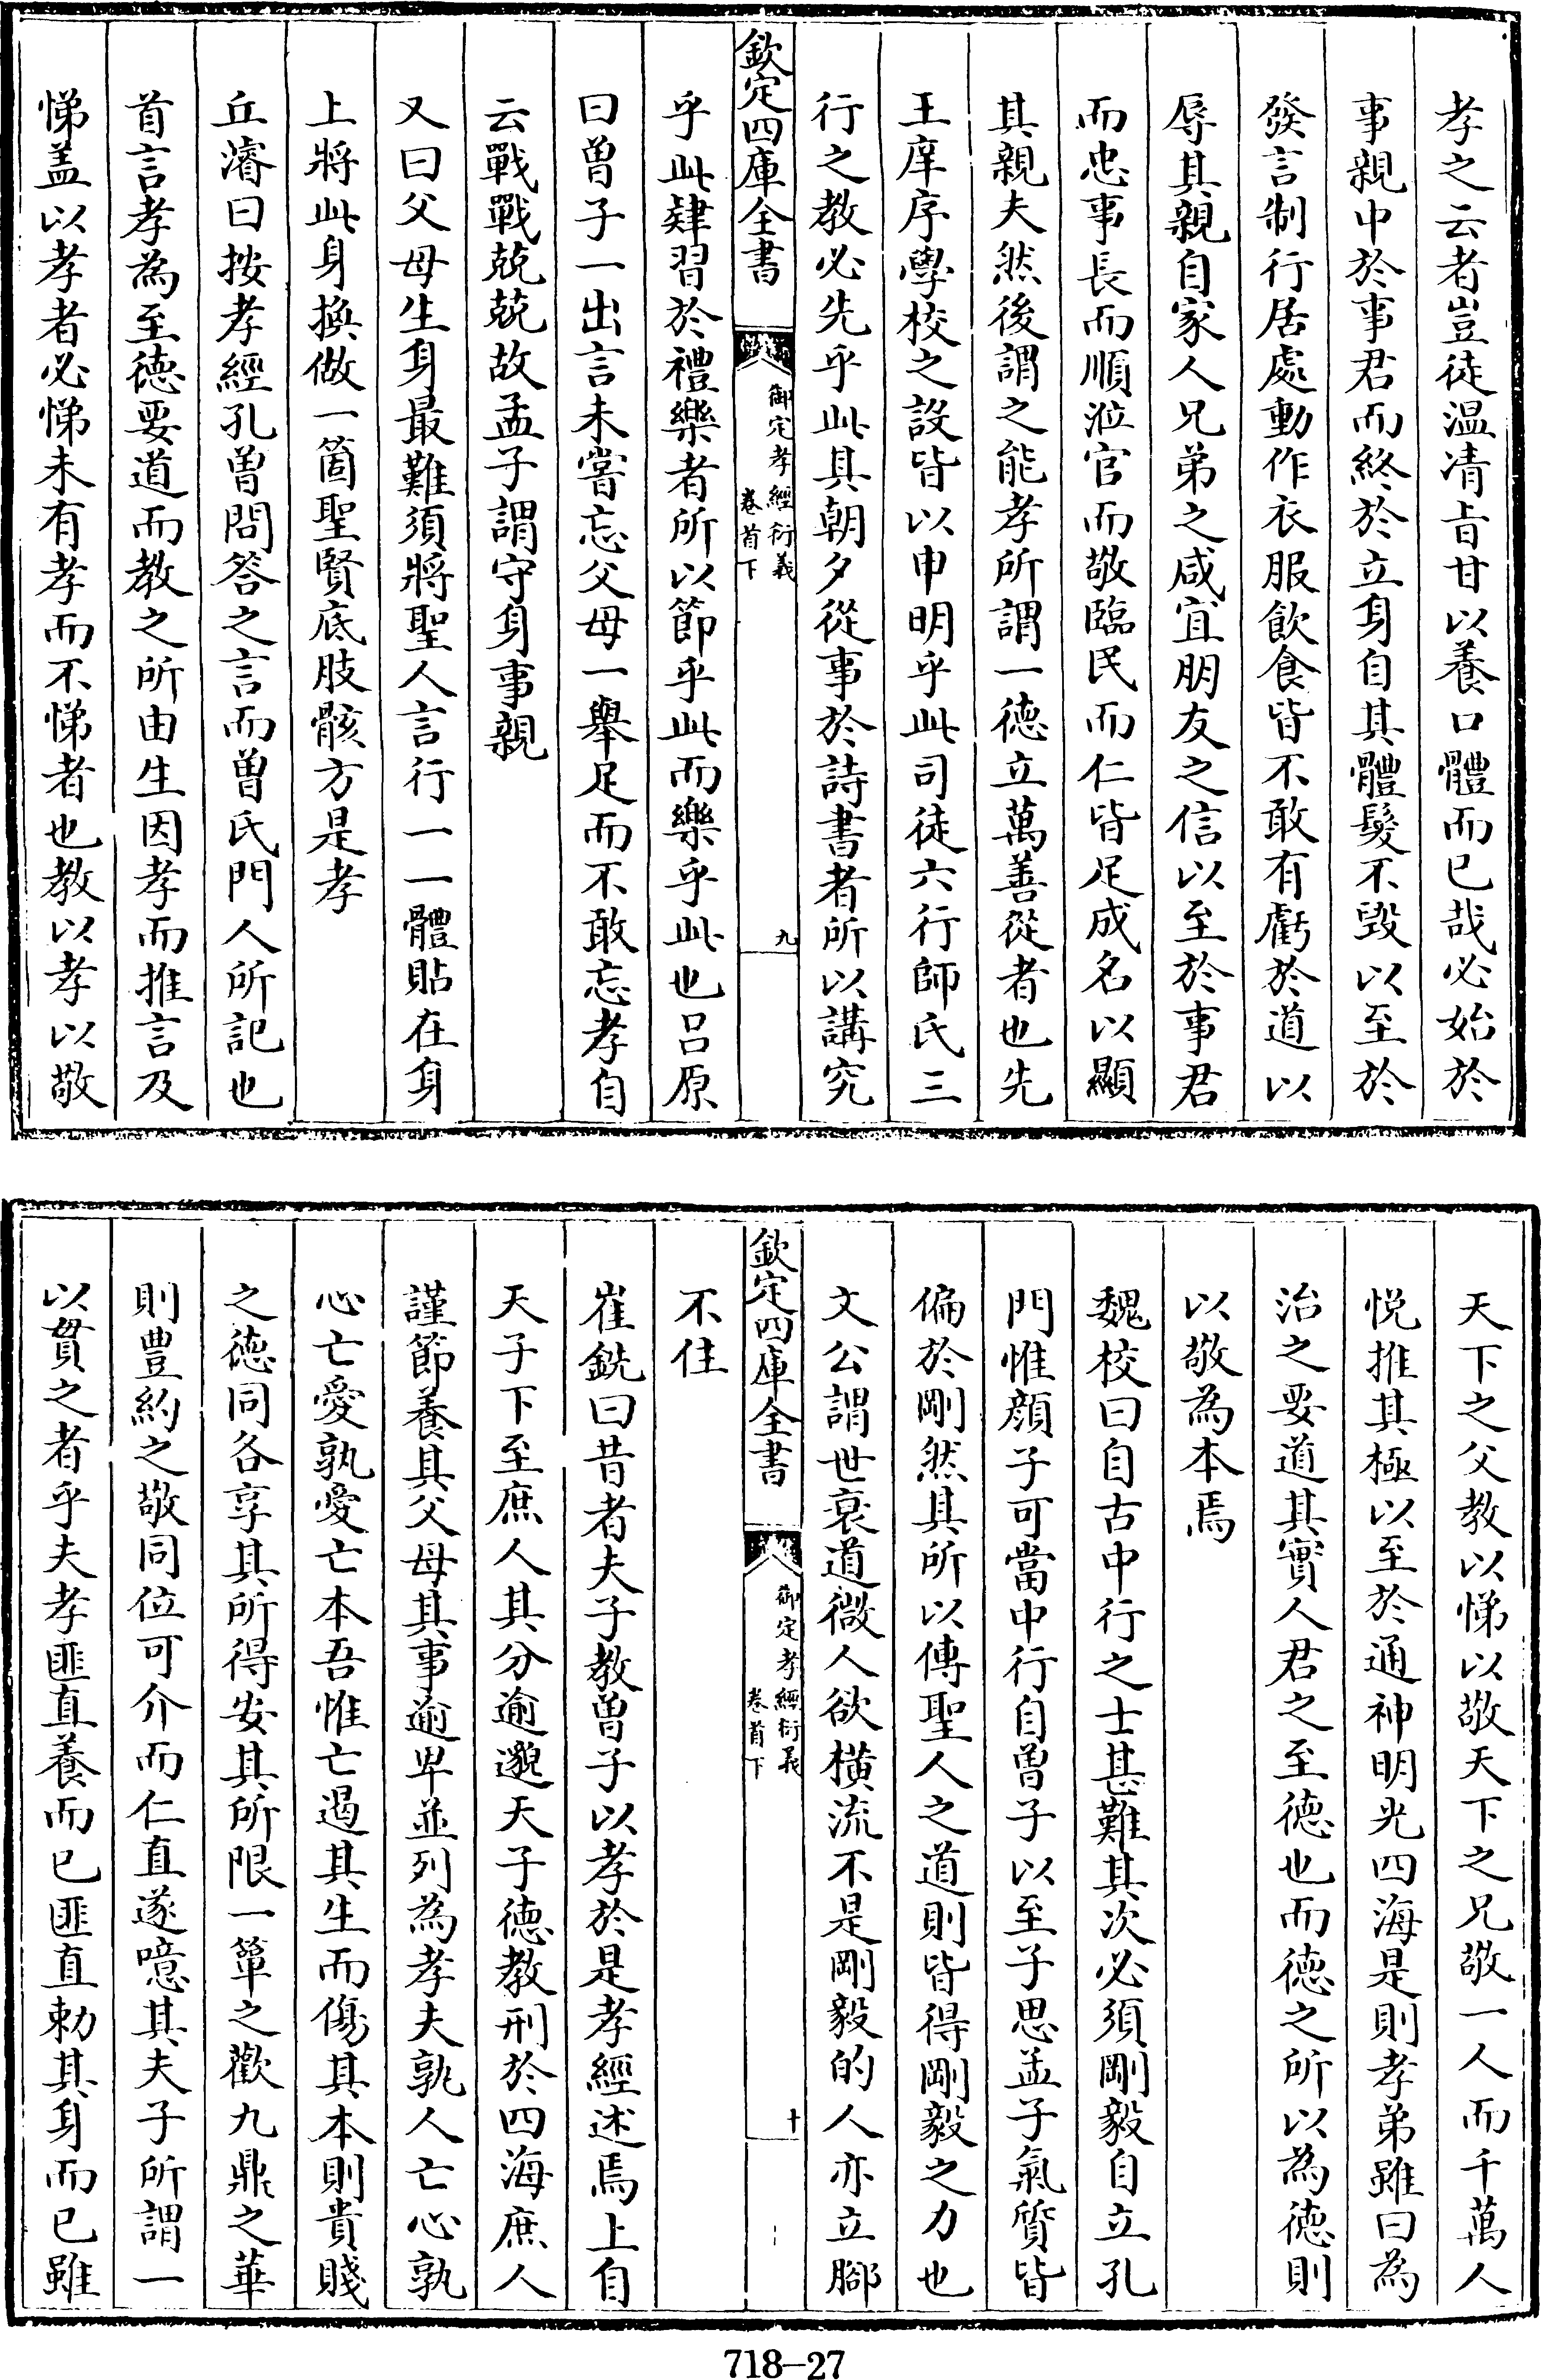 孝之云者豈徒温凊旨甘以養口體而已哉必始於
事親中於事君而終於立身自其體髮不毀以至於
發言制行居處動作衣服飲食皆不敢有虧於道以
辱其親自家人兄弟之咸宜朋友之信以至於事君
而忠事長而順涖官而敬臨民而仁皆足成名以顯
其親夫然後謂之能孝所謂一德立萬善從者也先
王庠序學校之設皆以申明乎此司徒六行師氏三
行之教必先乎此其朝夕從事於詩書者所以講究
欽定四庫全書
御定孝經衍義
卷首下
九
乎此肄習於禮樂者所以節乎此而樂乎此也呂原
曰曾子一出言未嘗忘父母一舉足而不敢忘孝自
云戰戰兢兢故孟子謂守身事親
又曰父母生身最難須將聖人言行一一體貼在身
上將此身換做一箇聖賢底肢骸方是孝
丘濬曰按孝經孔曾問答之言而曾氏門人所記也
首言孝為至德要道而教之所由生因孝而推言及
悌盖以孝者必悌未有孝而不悌者也教以孝以敬
天下之父教以悌以敬天下之兄敬一人而千萬人
悦推其極以至於通神明光四海是則孝弟雖曰為
治之要道其實人君之至德也而德之所以為德則
以敬為本焉
魏校曰自古中行之士甚難其次必須剛毅自立孔
門惟顔子可當中行自曾子以至子思孟子氣質皆
偏於剛然其所以傳聖人之道則皆得剛毅之力也
文公謂世衰道微人欲橫流不是剛毅的人亦立腳
欽定四庫全書
御定孝經衍義
卷首下
十
不住
崔銑曰昔者夫子教曾子以孝於是孝經述焉上自
天子下至庶人其分逾邈天子德教刑於四海庶人
謹節養其父母其事逾卑並列為孝夫孰人亡心孰
心亡愛孰愛亡本吾惟亡遏其生而傷其本則貴賤
之德同各享其所得安其所限一簞之歡九鼎之華
則豊約之敬同位可介而仁直遂噫其夫子所謂一
以貫之者乎夫孝匪直養而已匪直勅其身而已雖
718-27